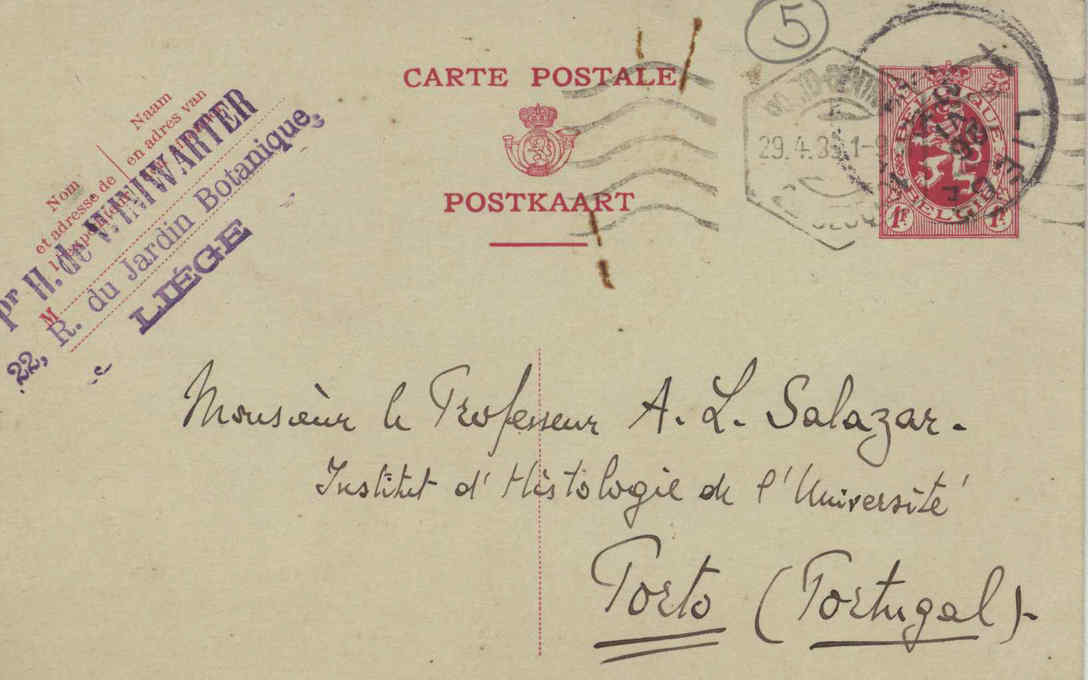 5
CARTE POSTALE
POSTKAART
Naam
en adres van
Nom
et adresse de
Pr H. de WINIWARTER
M
22, R. du Jardin Botanique,
LIÉGE
29.4.35
BELGIQUE
BELGIË
1F 1F
Monsieur le Professeur A. L. Salazar.
Institut d'Histologie de l'Université
Porto (Portugal).